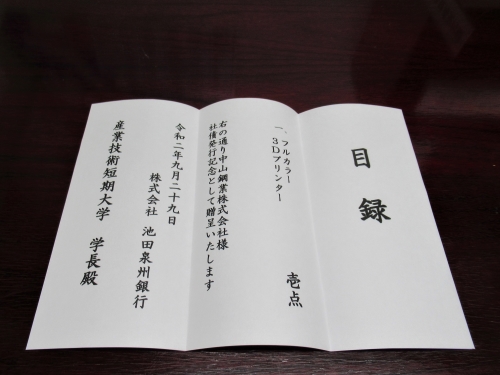 目録
一、フルカラー
3Dプリンター
壱点
右の通り中山鋼業株式会社様
社債発行記念として贈呈いたします
令和二年九月二十九日
株式会社 池田泉州銀行
産業技術短期大学 学長殿